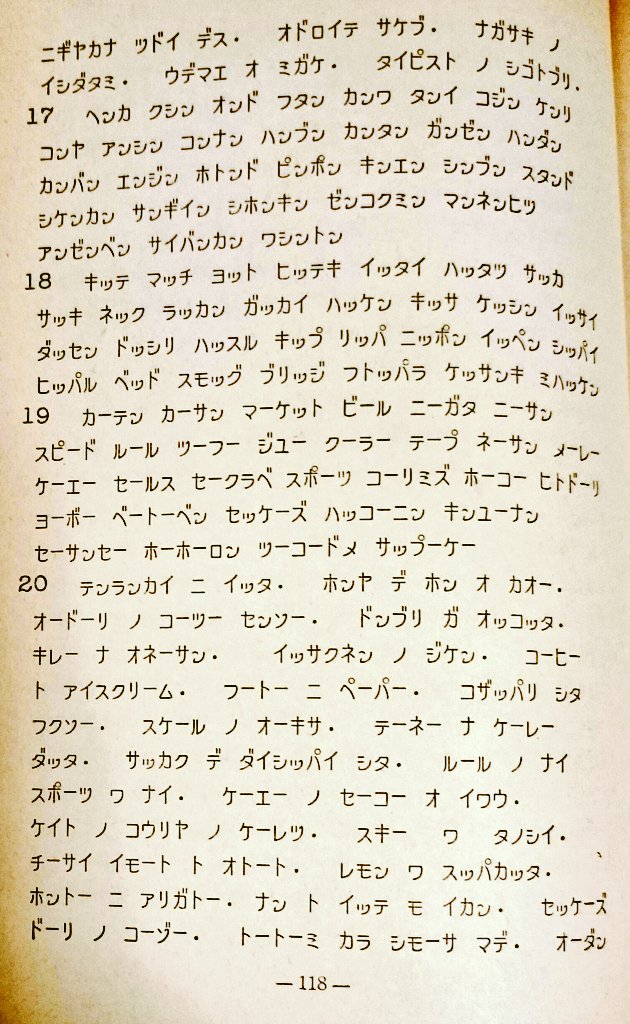 ニギヤカナ ツドイ デス. オドロイテ サケブ. ナガサキ ノ
イシダタミ. ウデマエ オ ミガケ. タイピスト ノ シゴトブリ.
17 ヘンカ クシン オンド フタン カンワ タンイ コジン ケンリ
コンヤ アンシン コンナン ハンブン カンタン ガンゼン ハンダン
カンバン エンジン ホトンド ピンポン キンエン シンブン スタンド
シケンカン サンギイン シホンキン ゼンコクミン マンネンヒツ
アンゼンベン サイバンカン ワシントン
18 キッテ マッチ ヨット ヒッテキ イッタイ ハッタツ サッカ
サッキ ネック ラッカン ガッカイ ハッケン キッサ ケッシン イッサイ
ダッセン ドッシリ ハッスル キップ リッパ ニッポン イッペン シッパイ
ヒッパル ベッド スモッグ ブリッジ フトッパラ ケッサンキ ミハッケン
19 カーテン カーサン マーケット ビール ニーガタ ニーサン
スピード ルール ツーフー ジユー クーラー テープ ネーサン メーレー
ケーエー セールス セークラベ スポーツ コーリミズ ホーコー ヒトドーリ
ヨーボー ベートーベン セッケーズ ハッコーニン キンユーナン
セーサンセー ホーホーロン ツーコードメ サップーケー
20 テンランカイ ニ イッタ. ホンヤ デ ホン オ カオー.
オードーリ ノ コーツー センソー. ドンブリ ガ オッコッタ.
キレー ナ オネーサン. イッサクネン ノ ジケン. コーヒー
ト アイスクリーム. フートー ニ ペーパー. コザッパリ シタ
フクソー. スケール ノ オーキサ. テーネー ナ ケーレー
ダッタ. サッカク デ ダイシッパイ シタ. ルール ノ ナイ
スポーツ ワ ナイ. ケーエー ノ セーコー オ イワウ.
ケイト ノ コウリヤ ノ ケーレツ. スキー ワ タノシイ.
チーサイ イモート ト オトート. レモン ワ スッパカッタ.
ホントー ニ アリガトー. ナン ト イッテ モ イカン. セッケーズ
ドーリ ノ コーゾー. トートーミ カラ シモーサ マデ. オーダン
— 118 —